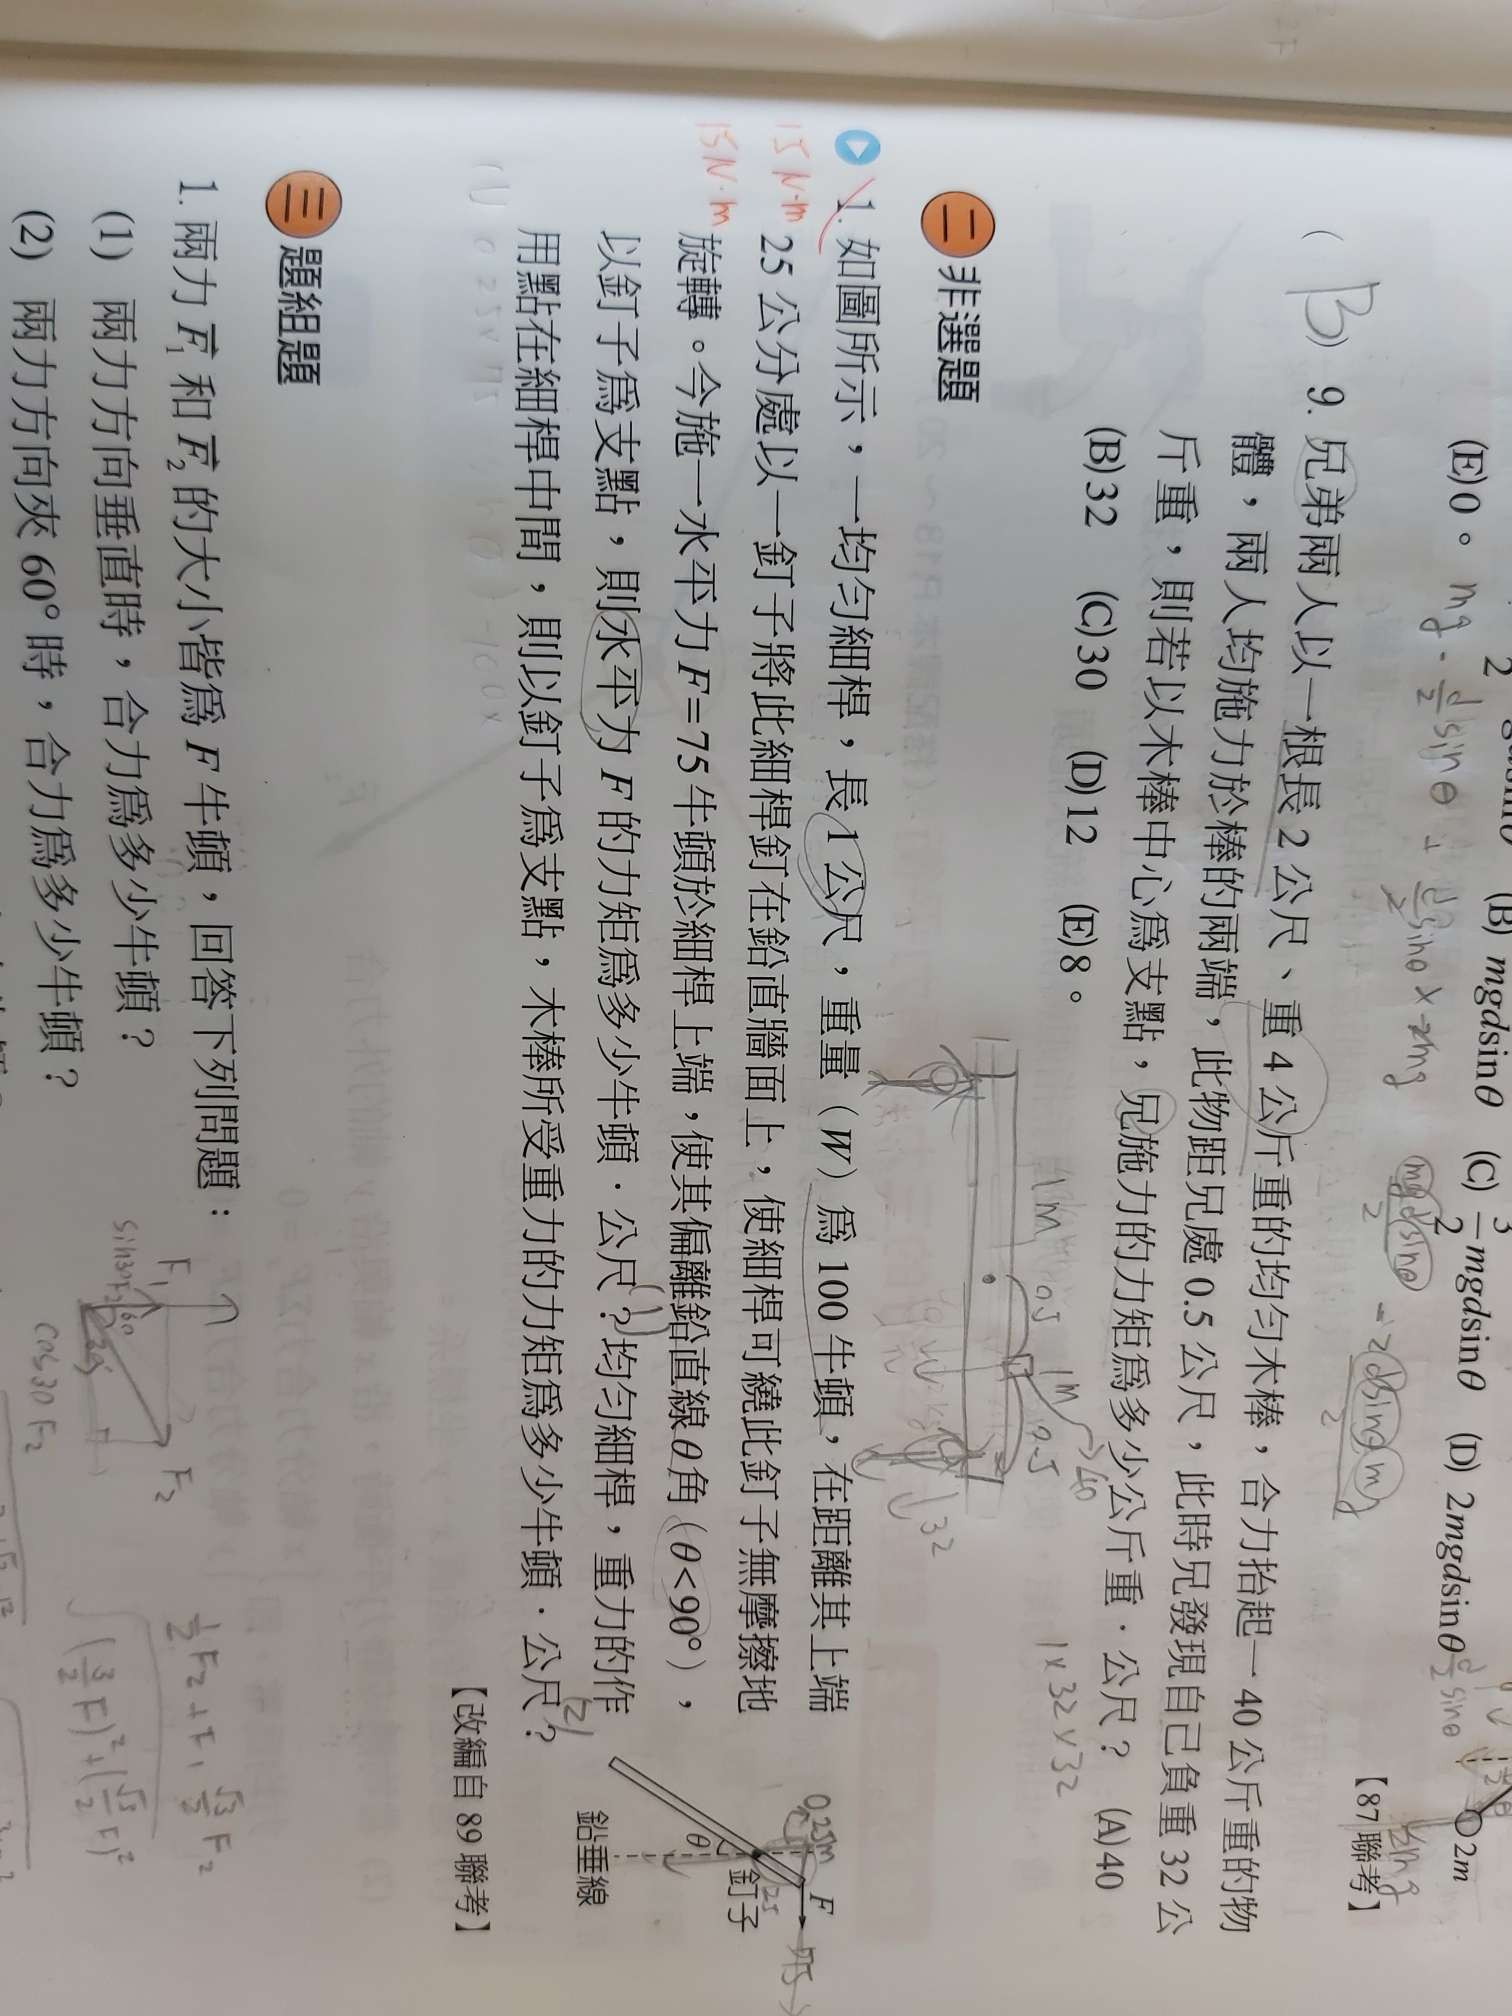 (E)0。 mg·d/2 sinθ
(B) mgdsinθ (C) 3/2 mgdsinθ (D) 2mgdsinθ
2m
【87 聯考】
(B) 9. 兄弟兩人以一根長 2 公尺、重 4 公斤重的均勻木棒，合力抬起一 40 公斤重的物
體，兩人均施力於棒的兩端，此物距兄處 0.5 公尺，此時兄發現自己負重 32 公
斤重，則若以木棒中心為支點，兄施力的力矩為多少公斤重．公尺？ (A)40
(B)32 (C)30 (D)12 (E)8。
1m 0.5 1m 0.5
40
32
1×32×32
二 非選題
1. 如圖所示，一均勻細桿，長 1 公尺，重量（W）為 100 牛頓，在距離其上端
25 公分處以一釘子將此細桿釘在鉛直牆面上，使細桿可繞此釘子無摩擦地
旋轉。今施一水平力 F=75 牛頓於細桿上端，使其偏離鉛直線 θ 角（θ<90°），
以釘子為支點，則水平力 F 的力矩為多少牛頓．公尺？(1)均勻細桿，重力的作
用點在細桿中間，則以釘子為支點，木棒所受重力的力矩為多少牛頓．公尺？(2)
【改編自 89 聯考】
15 N·m
15N·m
0.25m
F
75
25
釘子
θ
鉛垂線
三 題組題
1. 兩力 F₁ 和 F₂ 的大小皆為 F 牛頓，回答下列問題：
(1) 兩力方向垂直時，合力為多少牛頓？
(2) 兩力方向夾 60° 時，合力為多少牛頓？
F₁
F₂
sin30F₂
60
30°
cos30 F₂
1/2 F₂ + F₁ √3/2 F₂
√(3/2 F)² + (√3/2 F)²